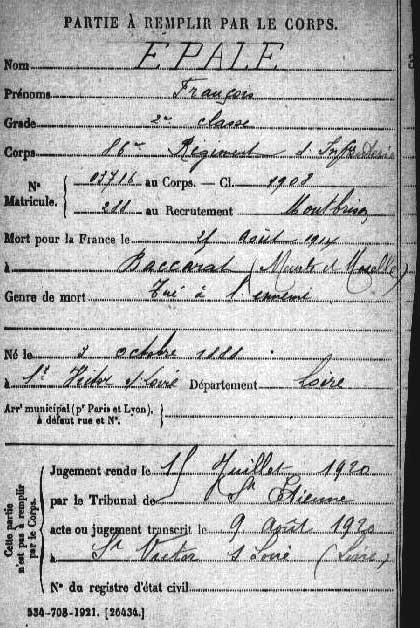 PARTIE À REMPLIR PAR LE CORPS.
Nom EPALE
Prénoms François
Grade 2e classe
Corps 86me Régiment d'Infanterie
N° Matricule. { 03716 au Corps. — Cl. 1908
288 au Recrutement Montbrison
Mort pour la France le 25 Août 1914
à Baccarat (Meurthe et Moselle)
Genre de mort Tué à l'ennemi
Né le 3 octobre 1888
à St Victor s/Loire Département Loire
Arrt municipal (pr Paris et Lyon), à défaut rue et N°.
Cette partie n'est pas à remplir par le Corps.
Jugement rendu le 15 Juillet 1920
par le Tribunal de St Etienne
acte ou jugement transcrit le 9 Août 1920
à St Victor s Loire (Loire)
N° du registre d'état civil
534-708-1921. [26434.]